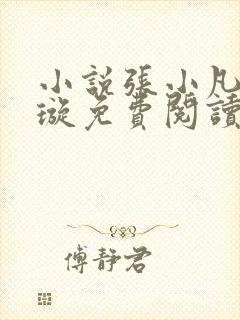 小說張小凡
璇免費閱讀
傅靜君